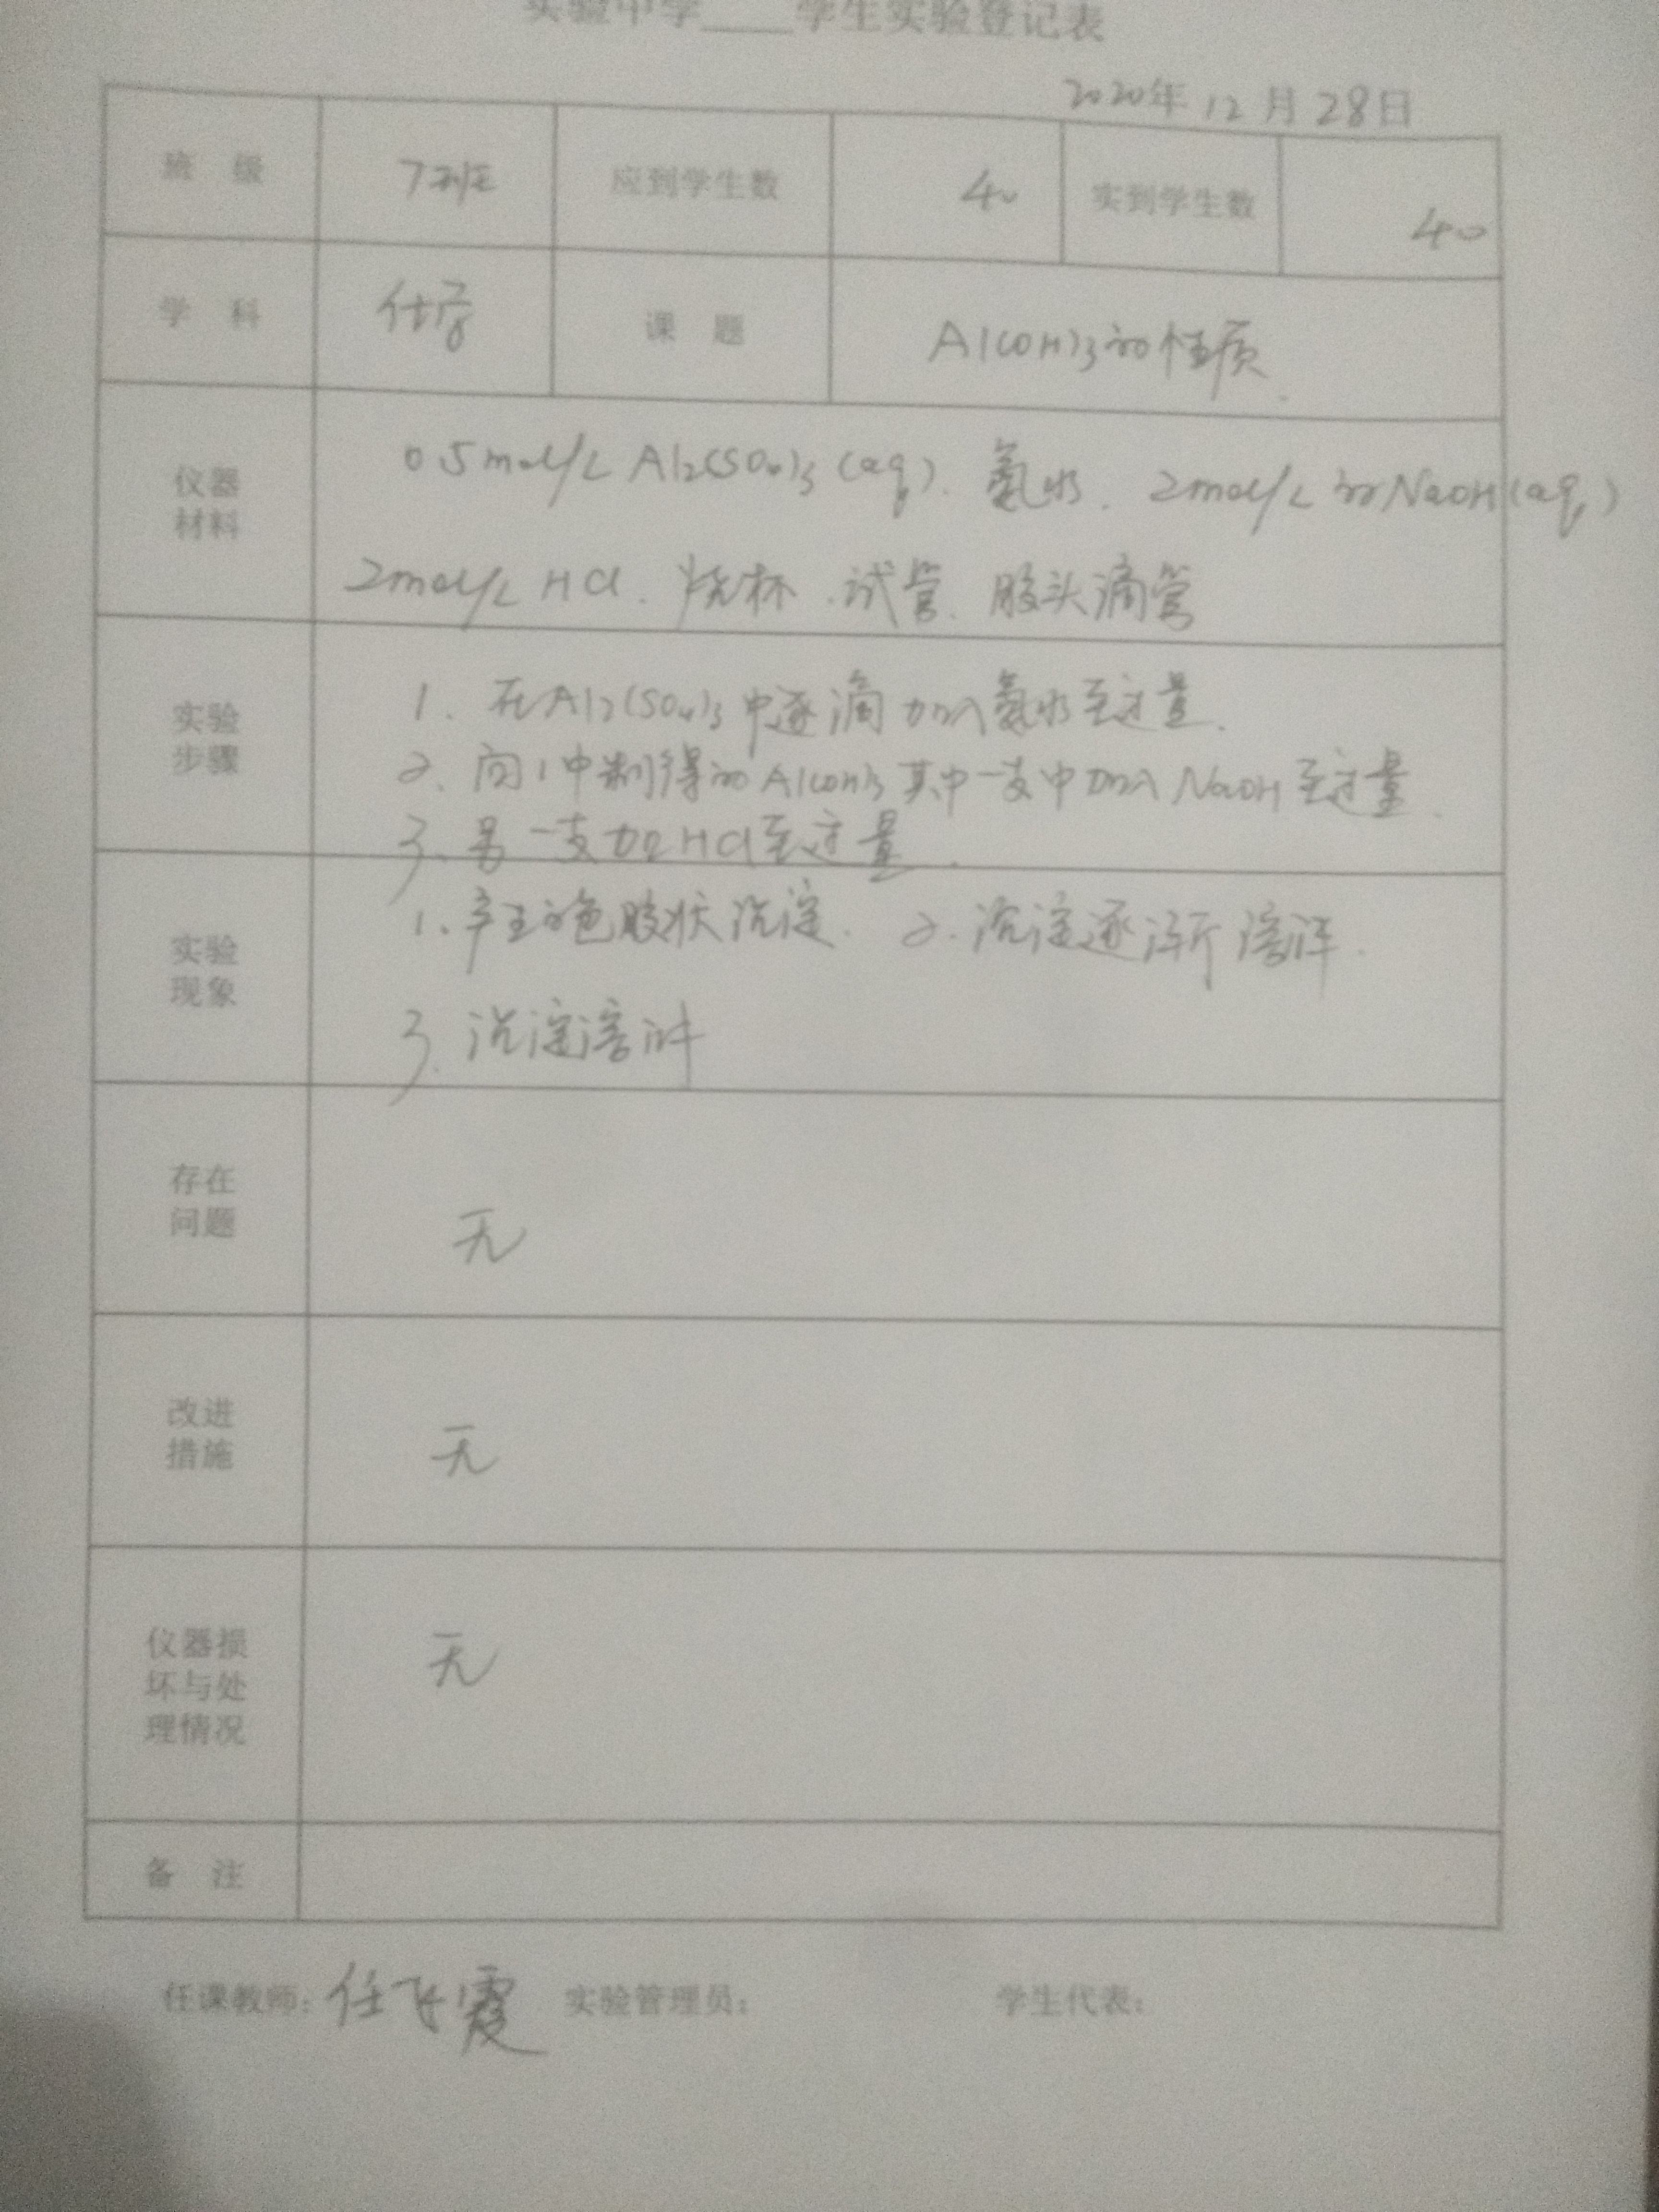 实验中学____学生实验登记表
2020年 12 月 28日
班 级 7班 应到学生数 40 实到学生数 40
学 科 化学 课 题 Al(OH)3的性质.
仪器
材料
0.5mol/L Al2(SO4)3 (aq). 氨水. 2mol/L的NaOH(aq)
2mol/L HCl. 烧杯. 试管. 胶头滴管
实验
步骤
1. 在Al2(SO4)3中逐滴加入氨水至过量.
2. 向1中制得的Al(OH)3其中一支中加入NaOH至过量.
3. 另一支加HCl至过量.
实验
现象
1. 产生白色胶状沉淀. 2. 沉淀逐渐溶解.
3. 沉淀溶解
存在
问题
无
改进
措施
无
仪器损
坏与处
理情况
无
备 注
任课教师: 任飞霞 实验管理员: 学生代表: